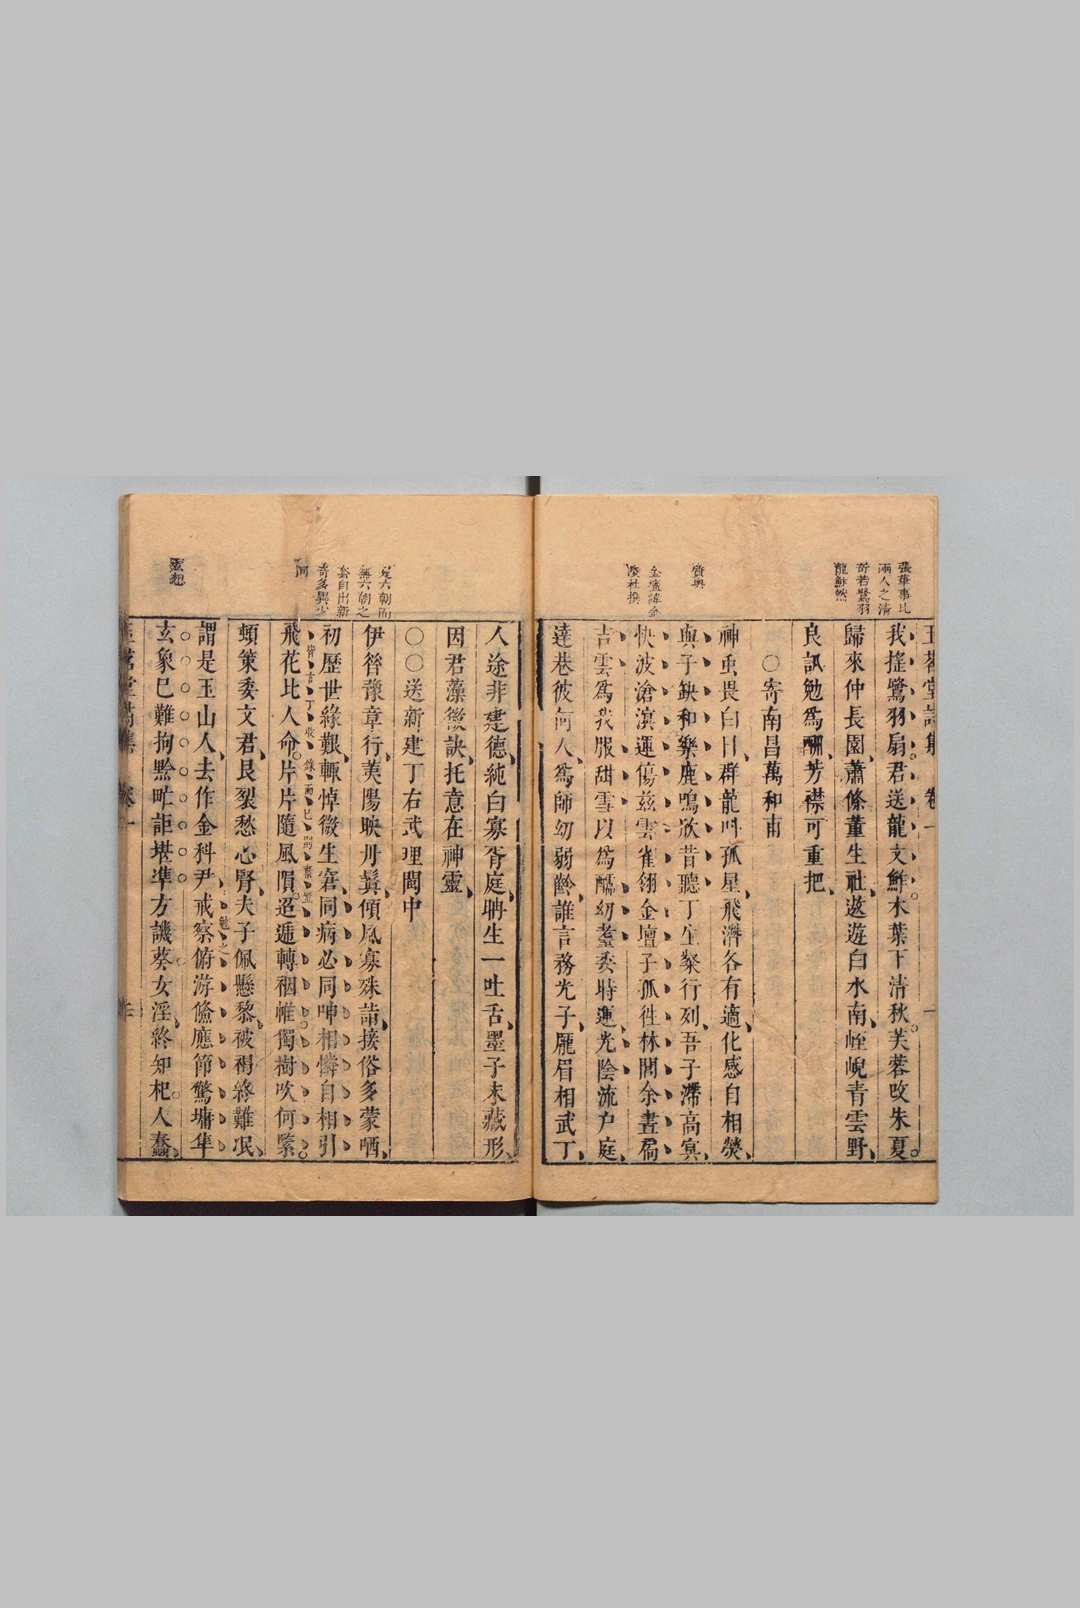 張華事比
兩人之清
奇若鷺羽
龍鮓然
我搖鷺羽扇君送龍文鮓木葉下清秋芙蓉改朱夏
歸來仲長園蕭條董生社遨遊白水南崕崐青雲野
良訊勉為酬芳襟可重把
○寄南昌萬和甫
神虫畏白日群龍叫孤星飛潛各有適化感自相熒
與子缺和樂鹿鳴欣昔聽丁生粲行列吾子滯高冥
快波滄溟運傷茲雲雀翎金壇子孤徃林閣余晝扃
吉雲為我服甜雪以為醽幼耋委時運光陰流戶庭
達巷彼何人為師幼弱齡誰言務光子厖眉相武丁
人途非建德純白寡胥庭聃生一吐舌墨子未藏形
因君藻徵訣托意在神靈
○○送新建丁右武理閩中
見六朝而
無六朝之
套自出新
奇多異少
同
伊昝豫章行英陽映丹冀傾風寡殊詣接俗多蒙哂
初歷世緣艱輒悼微生窘同病必同呻相憐自相引
飛花比人命片片隨風隕迢遞轉裀帷獨樹吹何緊
頰策委文君艮裂愁心腎夫子佩懸黎被褐終難泯
謂是玉山人去作金科尹戒察俯游儵應節驚墉隼
玄象已難拘黔甿詎堪準方譏葵女淫終知杞人蠢
玉茗堂詩集 卷一